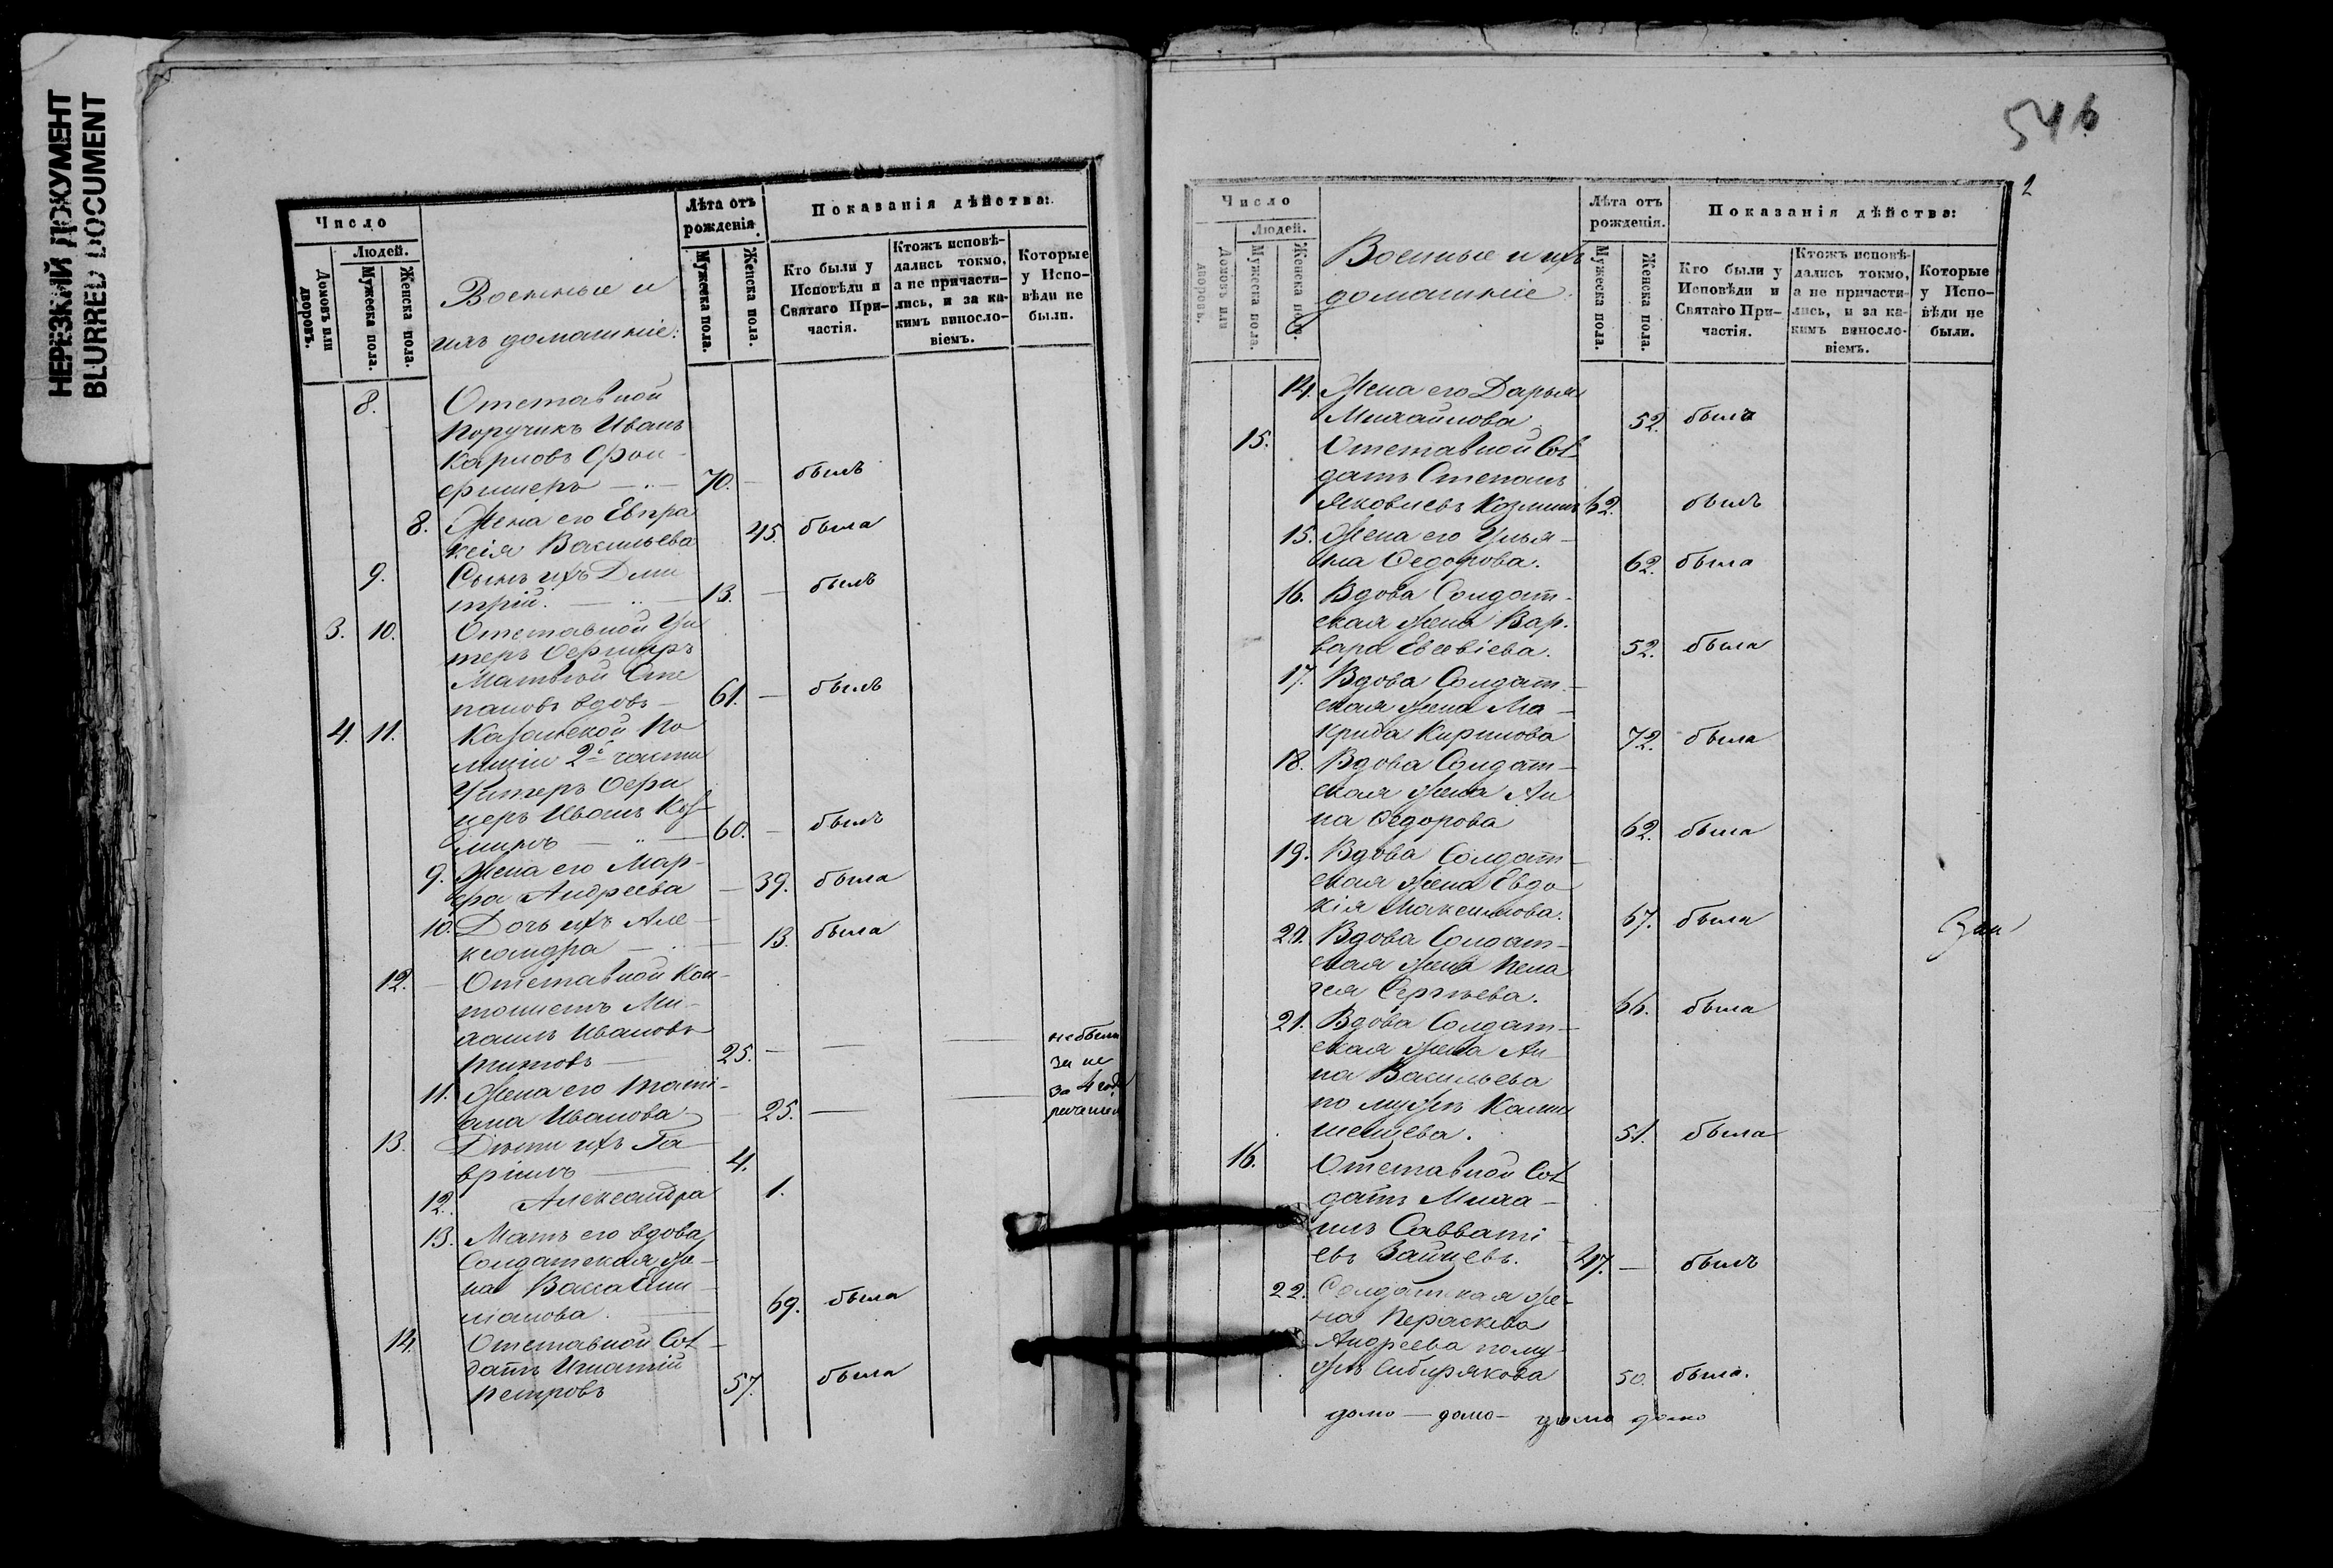 НЕРЕЗКИЙ ДОКУМЕНТ
BLURRED DOCUMENT
Число
Людей.
Домовъ или дворовъ.
Мужеска пола.
Женска пола.
Военные и
ихъ домашніе:
Лѣта отъ рожденія.
Мужеска пола.
Женска пола.
Показанія дѣйства:
Кто были у Исповѣди и Святаго Причастія.
Ктожъ исповѣдались токмо, а не причастились, и за какимъ винословіемъ.
Которые у Исповѣди не были.
8. Отставной
Поручикъ Иванъ
Карловъ Фон-
70. — былъ
8. Жена его Евпра
ксія Васильева 45. была
9. Сынъ ихъ Дми
трій. — 13. — былъ
3. 10. Отставной Ун
теръ Офицеръ
Матвѣй Сте
пановъ вдовъ — 61. — былъ
4. 11. Казанской По
лиціи 2й части
Унтеръ Офи
церъ Иванъ Коз
минъ — 60. — былъ
9. Жена его Мар-
фа Андреева — 39. была
10. Дочь ихъ Але-
ксандра — 13. была
12. — Отставной Кан-
тонистъ Ми-
хаилъ Ивановъ
Титовъ — 25. — — — небыли
за не
11. Жена его Тати-
ана Иванова — 25. — —
13. Дѣти ихъ Га-
вріилъ — 4.
12. Александра 1.
13. Мать его вдова
Солдатская же-
на Васса Еми-
ліанова. 69. была
14. Отставной Сол-
датъ Игнатій
Петровъ 57. была
546
2
Число
Людей.
Домовъ или дворовъ.
Мужеска пола.
Женска пола.
Военные и ихъ
домашніе:
Лѣта отъ рожденія.
Мужеска пола.
Женска пола.
Показанія дѣйства:
Кто были у Исповѣди и Святаго Причастія.
Ктожъ исповѣдались токмо, а не причастились, и за какимъ винословіемъ.
Которые у Исповѣди не были.
14. Жена его Дарья
Михайлова 52. была
15. Отставной Сол
датъ Степанъ
Яковлевъ Козминъ 62. былъ
15. Жена его Улья-
на Ѳедорова. 62. была
16. Вдова Солдат-
ская жена Вар-
вара Евсевіева. 52. была
17. Вдова Солдат-
ская жена Ма-
крида Кирилова 72. была
18. Вдова Солдат-
ская жена Ан
на Ѳедорова 62. была
19. Вдова Солдат-
ская жена Евдо
кія Максимова. 67. была
20. Вдова Солдат-
ская жена Пела
гея Сергѣева. 66. была
21. Вдова Солдат-
ская жена Ан-
на Васильева
по мужѣ
51. была
16. Отставной Сол
датъ Миха-
илъ Савваті
евъ Зайцевъ. 47. — былъ
22. Солдатская же-
на Параскева
Андреева по му-
жѣ Сибирякова 50. была.